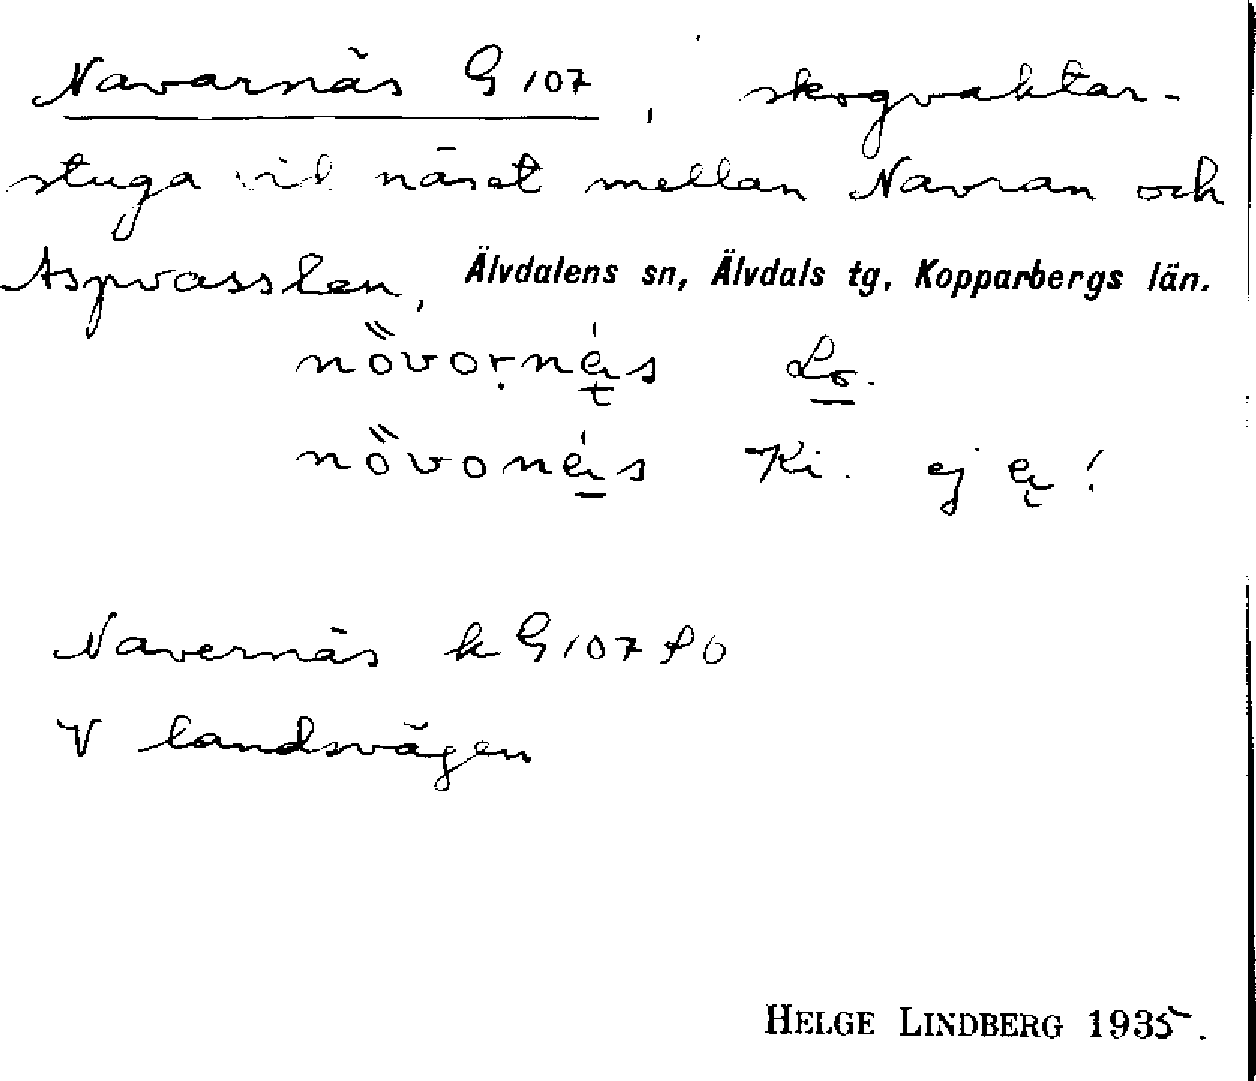 Navarnäs G 107, skogvaktar-
stuga vid näset mellan Navran och
Aspvasslen, Älvdalens sn, Älvdals tg, Kopparbergs län.
növornäs Lo.
növonäs Ki. ej ä !
Navernäs k G 107 f 0
V landsvägen
HELGE LINDBERG 1935.